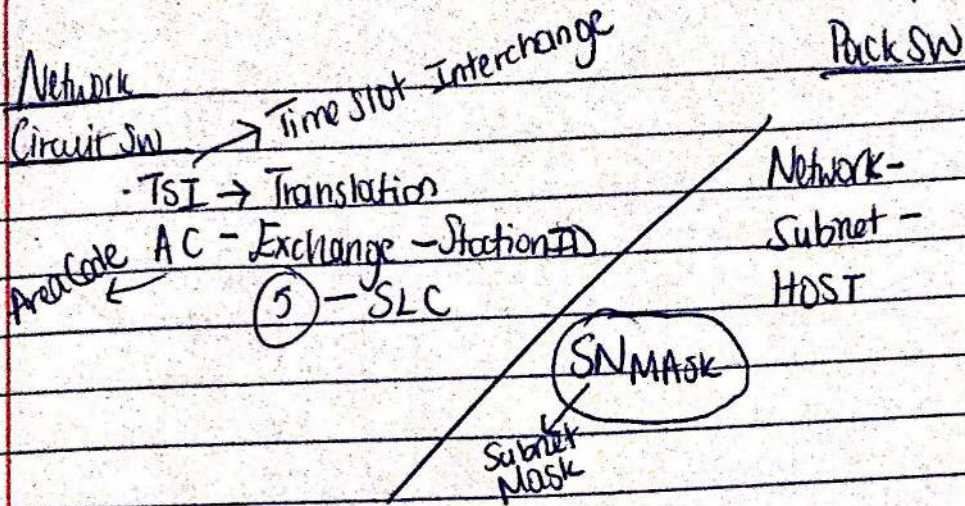 Network
Circuit SW → Time slot Interchange
- TSI → Translation
Area Code ← AC - Exchange - Station ID
5 - SLC
Pack SW
Network -
Subnet -
HOST
SN MASK
Subnet
Mask